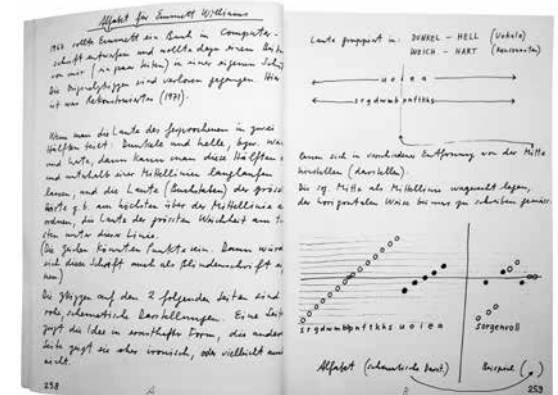 Alfabet für Emmett Williams
196 wollte Emmett ein Buch in Computer-
schrift entwerfen und wollte dazu einen Bei
von mir (ein paar Seiten) in einer eigenen Schri
Die Originalskizzen sind verloren gegangen. Hier
ist was Rekonstruiertes (1971).
Wenn man die Laute des Gesprochenen in zwei
Hälften teilt: Dunkle und helle, bzw. wei
und harte, dann kann man diese Hälften
und unterhalb einer Mittellinien langlaufen
lassen, und die Laute (Buchstaben) der gröss
Härte z.b. am höchsten über der Mittellinie a
ordnen, die Laute der grössten Weichheit am t
sten unter dieser Linie.
(Die Zeichen könnten Punkte sein. Dann würd
sich diese Schrift auch als Blindenschrift ei
nen)
Die Skizzen auf den 2 folgenden Seiten sind
rohe, schematische Darstellungen. Eine Seit
zeigt die Idee in ernsthafter Form, die andere
Seite zeigt sie eher ironisch, oder vielleicht au
nicht.
258
A
Laute gruppiert in: DUNKEL - HELL (Vokale)
WEICH - HART (Konsonanten)
u o i e a
s r g d w m b p n f t k h s
lassen sich in verschiedener Entfernung von der Mitte
herstellen (darstellen).
Die sg. Mitte als Mittellinie waagrecht legen,
der horizontalen Weise bei uns zu schreiben gemäss.
s r g d w m b p n f t k h s u o i e a
sorgenvoll
Alfabet (schematische Darst.)
Beispiel ( )
B
259